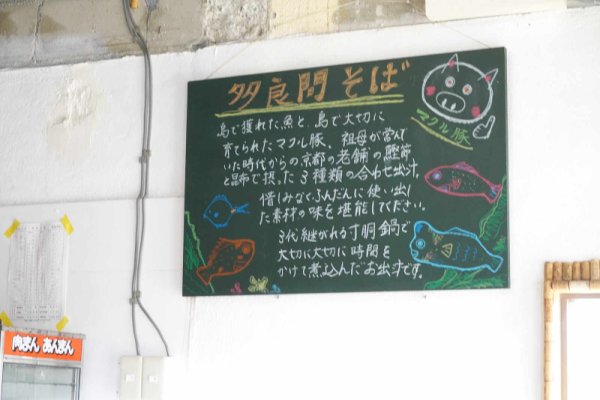 多良間そば
島で獲れた魚と、島で大切に
育てられたマクル豚、祖母が営んで
いた時代からの京都の老舗の鰹節
と昆布で摂った3種類の合わせ出汁。
惜しみなくふんだんに使い出し
た素材の味を堪能してください。
3代継がれる寸胴鍋で
大切に大切に時間を
かけて煮込んだお出汁です。
マクル豚
肉まん あんまん